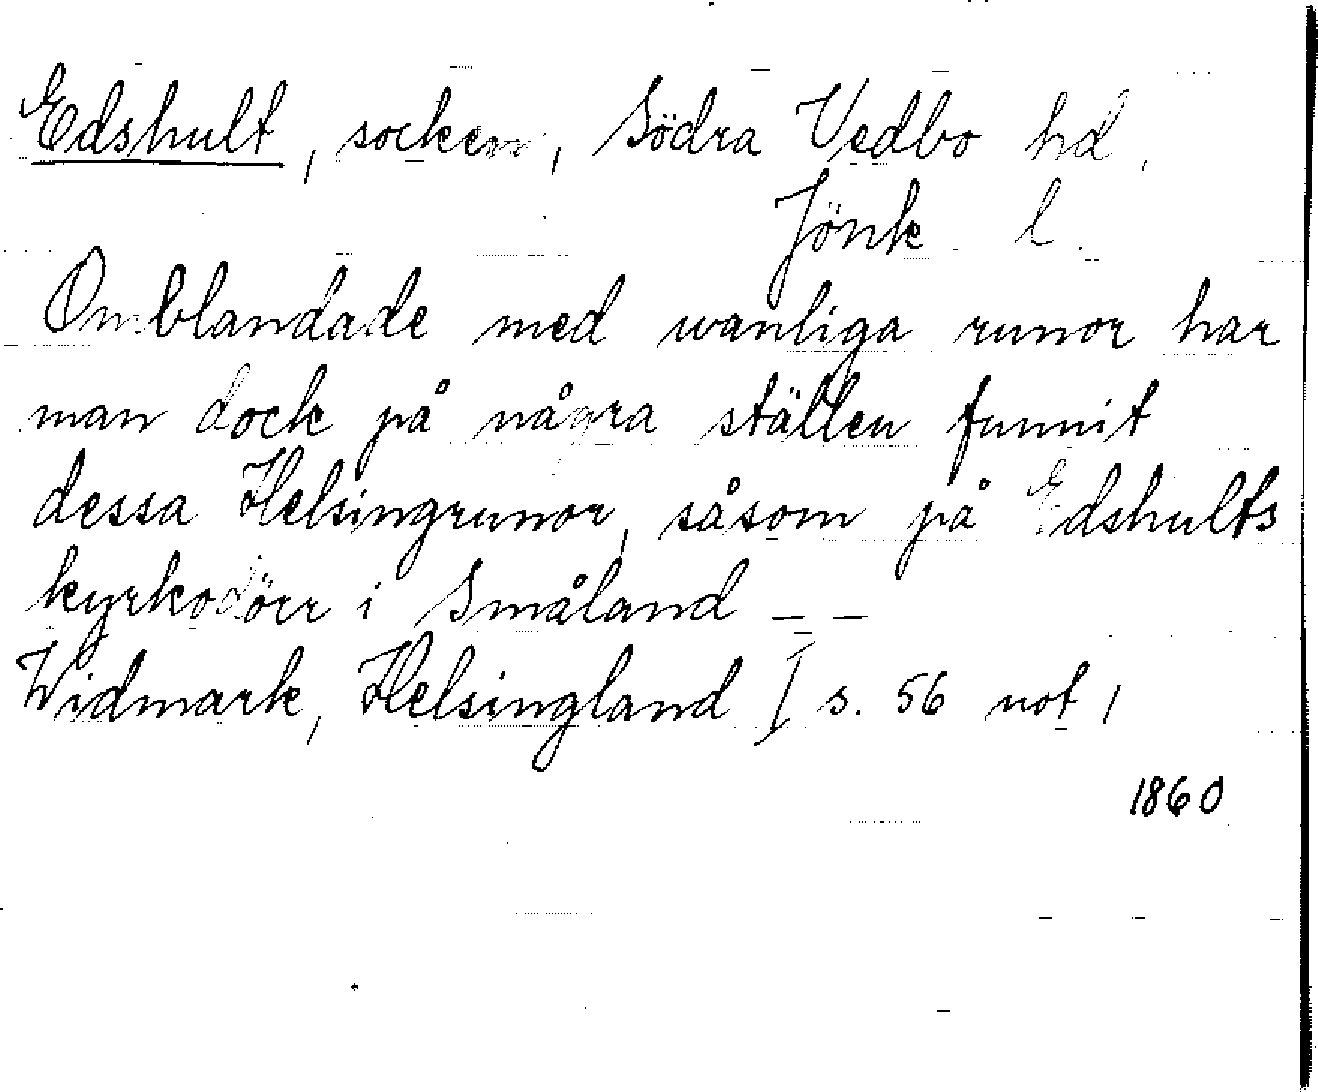 Edshult, socken, Södra Vedbo hd.
Jönk. l.
Omblandade med wanliga runor har
man dock på några ställen funnit
dessa Helsingrunor, såsom på Edshults
kyrkodörr i Småland _ _
Widmark, Helsingland I s. 56 not 1
1860